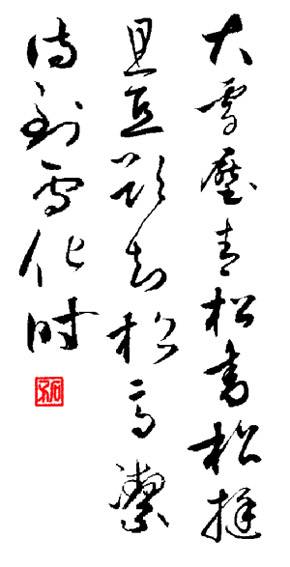 大雪壓青松青松挺
且直欲知松高潔
待到雪化时